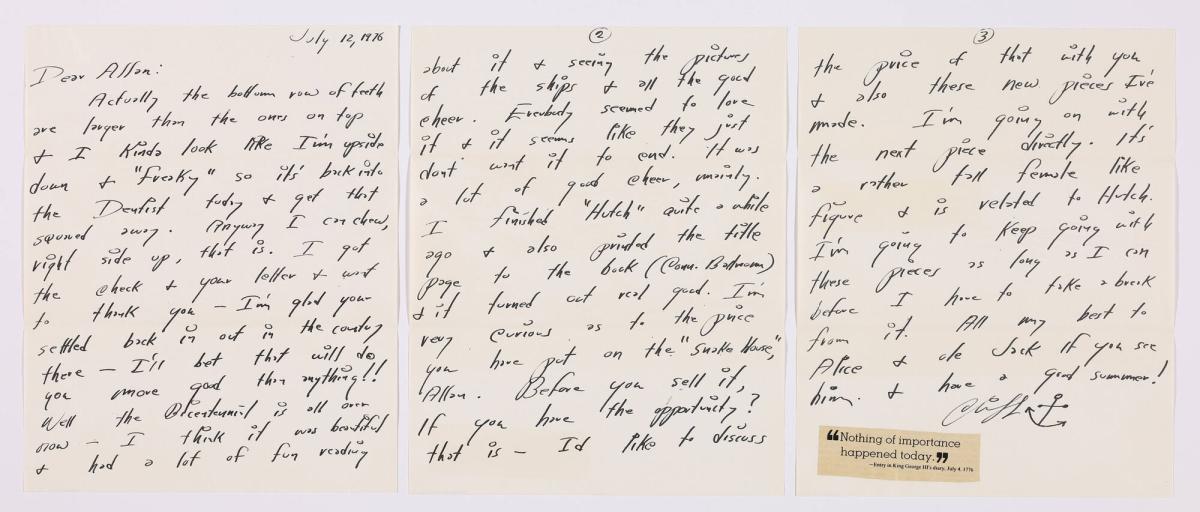 July 12, 1976
Dear Allan:
Actually the bottum row of teeth
are larger than the ones on top
& I kinda look like I'm upside
down & "freaky" so its' back into
the Dentist today & get that
squared away. Anyway I can chew,
right side up, that is. I got
the check & your letter & want
to thank you — I'm glad your
settled back in out in the country
there — I'll bet that will do
you more good than anything!!
Well the Bicentennial is all over
now — I think it was beautiful
& had a lot of fun reading
2
about it & seeing the pictures
of the ships & all the good
cheer. Everybody seemed to love
it & it seems like they just
dont want it to end. It was
a lot of good cheer, mainly.
I finished "Hutch" quite a while
ago & also printed the title
page to the book (Conn. Ballroom)
& it turned out real good. I'm
very curious as to the price
you have put on the "Snake House",
Allan. Before you sell it,
If you have the opportunity?
that is — Id like to discuss
3
the price of that with you
& also these new pieces I've
made. I'm going on with
the next piece directly. It's
a rather tall female like
figure & is related to Hutch.
I'm going to keep going with
these pieces as long as I can
before I have to take a break
from it. All my best to
Alice & ole Jack if you see
him. & have a good summer!
Cliff
❝Nothing of importance
happened today.❞
—Entry in King George III's diary, July 4, 1776